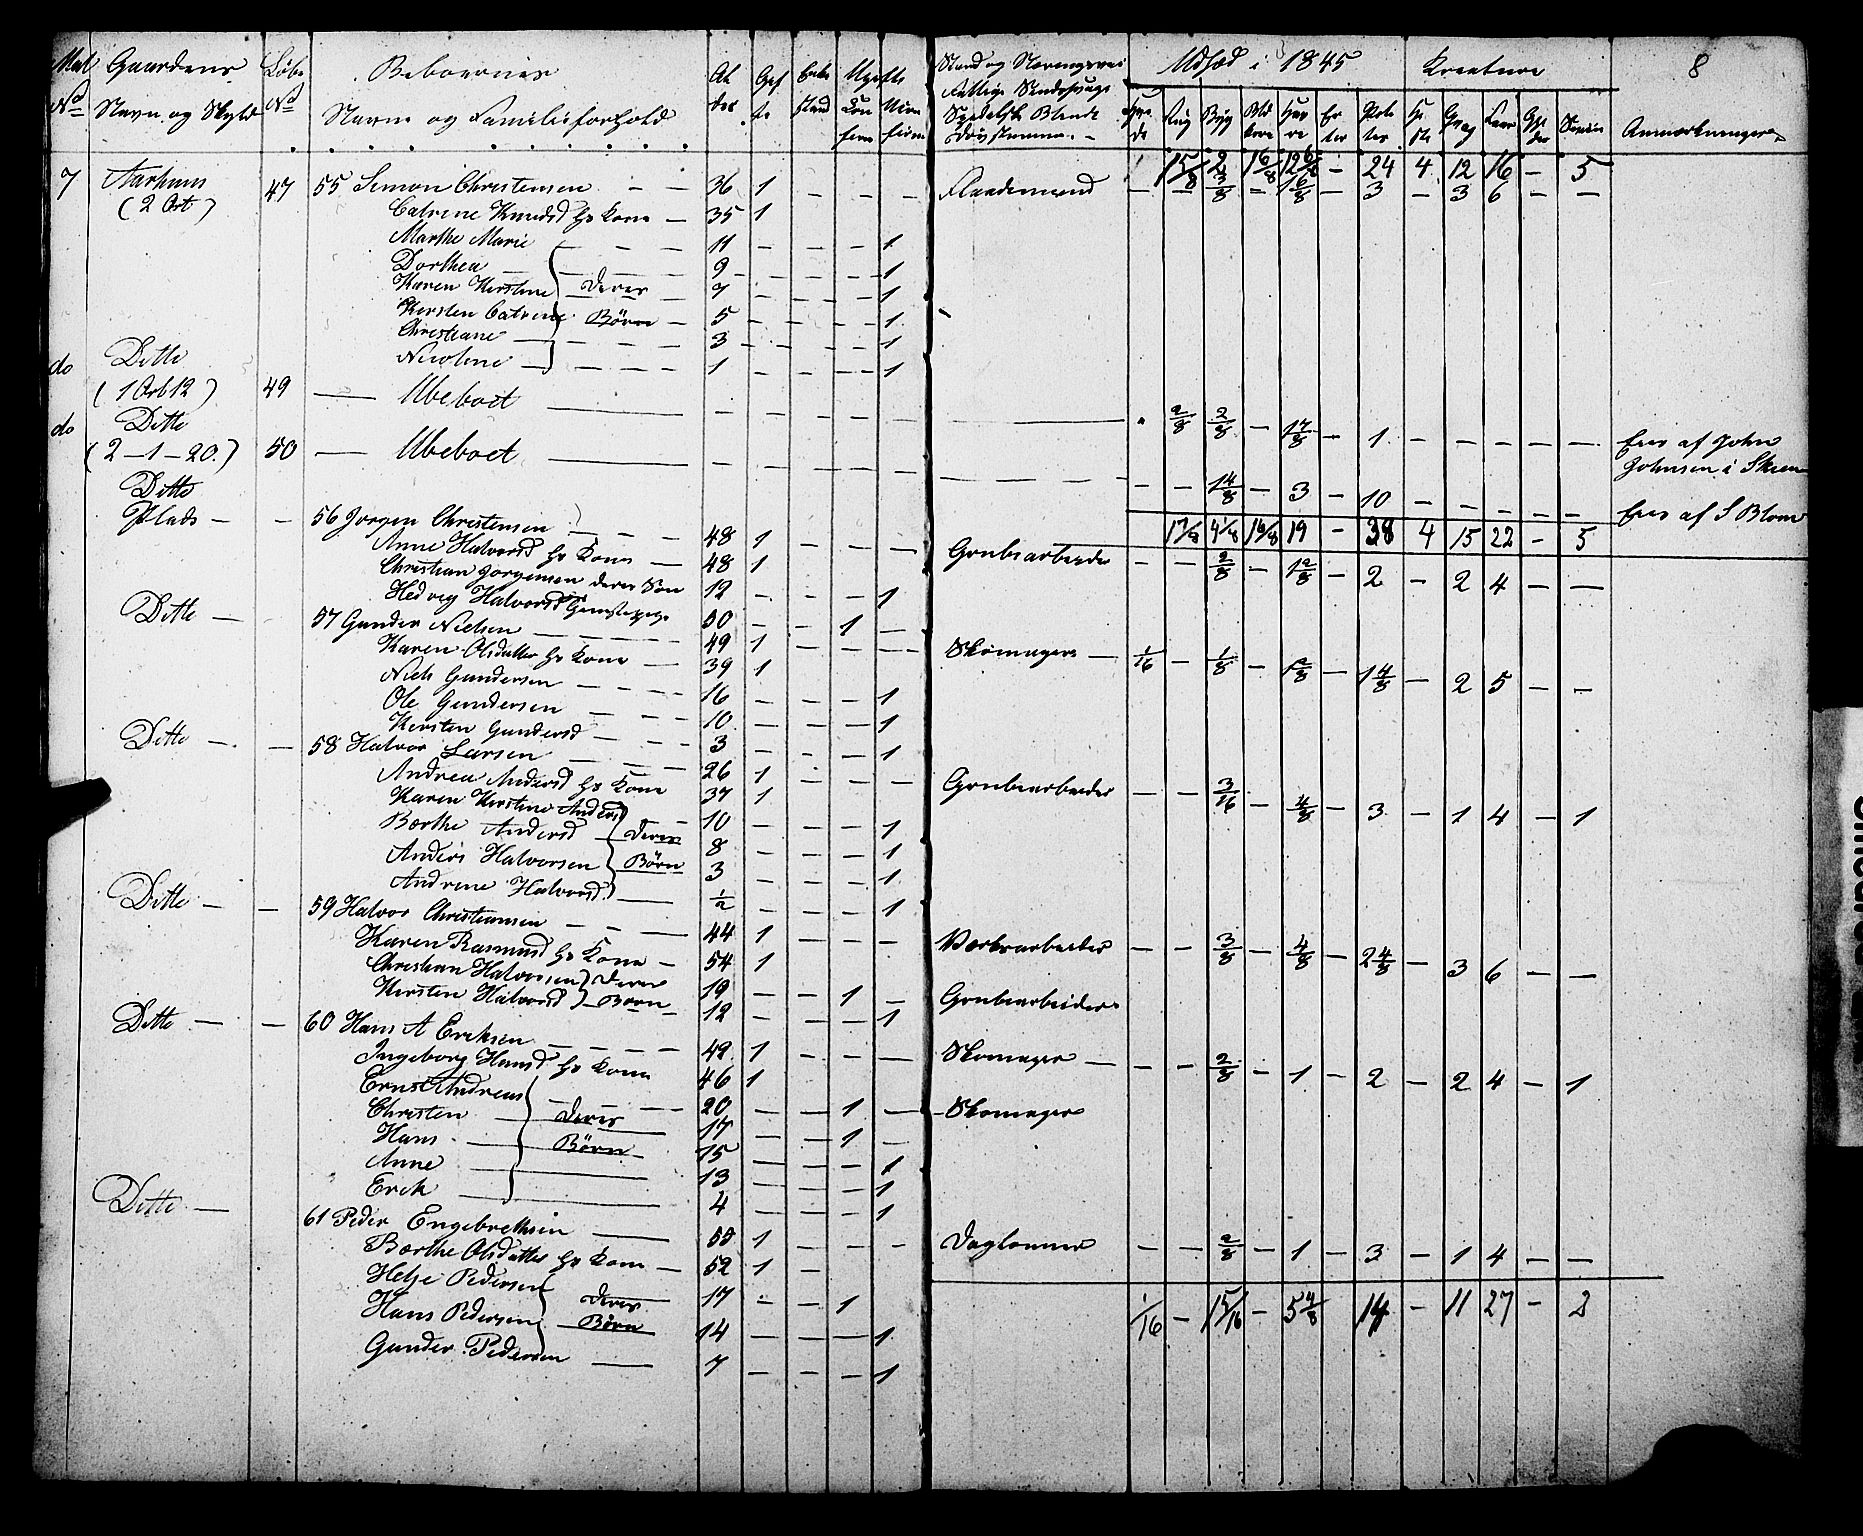 Mat No
Gaardens Navn og Skyld
Løbe No
Beboernes Navne og Familieforhold
Al der
Gif te
Enke stand
Ugifte
Con firm
Uconfirm
Stand og Næringsvei
Udsæd i 1845
Rug
Byg
Er ter
Po te ter
Kreature
Svin
Anmærkninger
8
15/8 2 16/8 12 6/8 – 24 4 12 16 – 5
7 Aarhuus (2 Ort) 47 55 Simon Christensen – – 36 1 – – – Gaardmand – – 3/8 – 1 6/8 – 3 – 3 6 – –
Catrine Knudsd hs Kone – 35 1
Marthe Marie – – – 11 – – – 1
Dorthea – – – 9 – – – 1
Karen Kirstine – Deres – 7 – – – 1
Kirsten Catrine Børn – 5 – – – 1
Christiane – – – 3 – – – 1
Nicoline – – – 1 – – – 1
do Ditte (1 Ort 12) 49 — Ubeboet — – – – – – 2/8 2/8 – 1 4/8 – 1 – – – – – Eies af John Johnsen i Skien
do Ditte (2–1–20.) 50 — Ubeboet — – – – – – – – 1 4/8 – 3 – 10 – – – – – Eies af S Blom
17/8 4 1/8 16/8 19 – 38 4 15 22 – 5
Ditte Plads – – 56 Jørgen Christensen – – 48 1 – – – Grubearbeider – – 2/8 – 1 2/8 – 2 – 2 4 – –
Anne Halvorsd hs Kone – 48 1
Christian Jørgensen deres Søn 12 – – – 1
Hedvig Halvorsd 50 – – 1 –
Ditte – – 57 Gunder Nielsen – – – 49 1 – – – Skomager – 1/16 – 1/8 – 1 2/8 – 1 4/8 – 2 5 – –
Karen Olsdatter hs Kone – 39 1
Niels Gundersen – – – 16 – – – 1
Ole Gundersen – – – 10 – – – 1
Kirsten Gundersd – – – 3 – – – 1
Ditte – – 58 Halvor Larsen – – – 26 1 – – – Grubearbeider – – 3/16 – 4/8 – 3 – 1 4 – 1
Andrea Andersd hs Kone 37 1
Karen Kirstine Andersd – 10 – – – 1
Børthe Andersd – Deres 8 – – – 1
Anders Halvorsen Børn 3 – – – 1
Andrine Halvorsd. — 1/2 – – – 1
Ditte – – 59 Halvor Christiansen – – – 44 1 – – – Værksarbeider – – 3/8 – 4/8 – 2 4/8 – 3 6 – –
Karen Rasmusd hs Kone – 54 1
Christian Halvorsen Deres 19 – – 1 – Grubearbeider
Kirsten Halvorsd – Børn – 12 – – – 1
Ditte – – 60 Hans A Eriksen – – – 49 1 – – – Skomager – – – 2/8 – 1 – 2 – 2 4 – 1
Ingeborg Hansd hs Kone 46 1
Ernst Andreas – – – 20 – – 1 – Skomager
Christen – Deres – 17 – – 1 –
Hans – Børn – 15 – – – 1
Anne – 13 – – – 1
Erik – 4 – – – 1
Ditte – 61 Peder Engebrethsen — 55 1 – – – Daglønner – – 2/8 – 1 – 3 – 1 4 – –
Børthe Olsdatter hs Kone – 52 1 –
Helje Pedersen Deres 17 – – 1
Hans Pedersen – Børn 14 – – – 1
Gunder Pedersen — 7 – – – 1
1/16 – 15/16 – 5 4/8 14 – 11 27 – 2